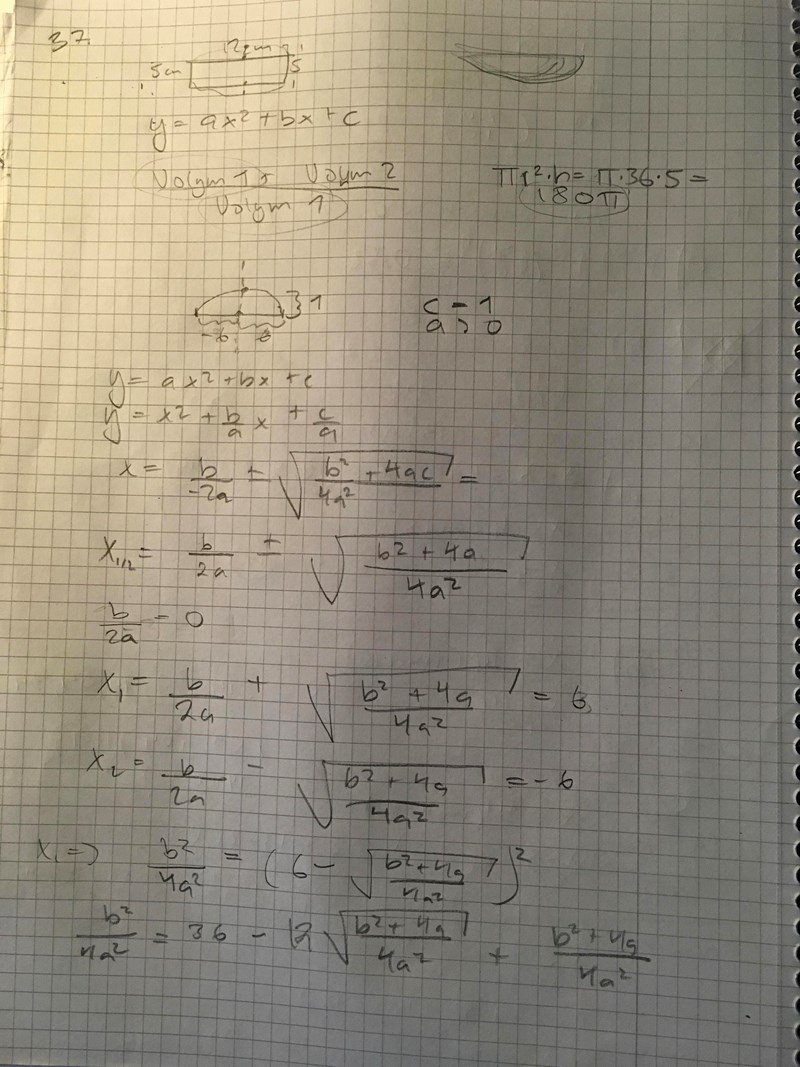 37.
12cm
5cm 5
y = ax² + bx + c
Volym 1 + Volym 2
Volym 1
πr²·h = π·36·5 =
180π
-6 6 } 1
c = 1
a > 0
y = ax² + bx + c
y = x² + b/a x + c/a
x = b/-2a ± √((b² + 4ac)/4a²) =
x₁,₂ = b/2a ± √((b² + 4a)/4a²)
b/2a = 0
x₁ = b/2a + √((b² + 4a)/4a²) = 6
x₂ = b/2a - √((b² + 4a)/4a²) = -6
x₁ => b²/4a² = (6 - √((b² + 4a)/4a²))²
b²/4a² = 36 - 12 √((b² + 4a)/4a²) + (b² + 4a)/4a²